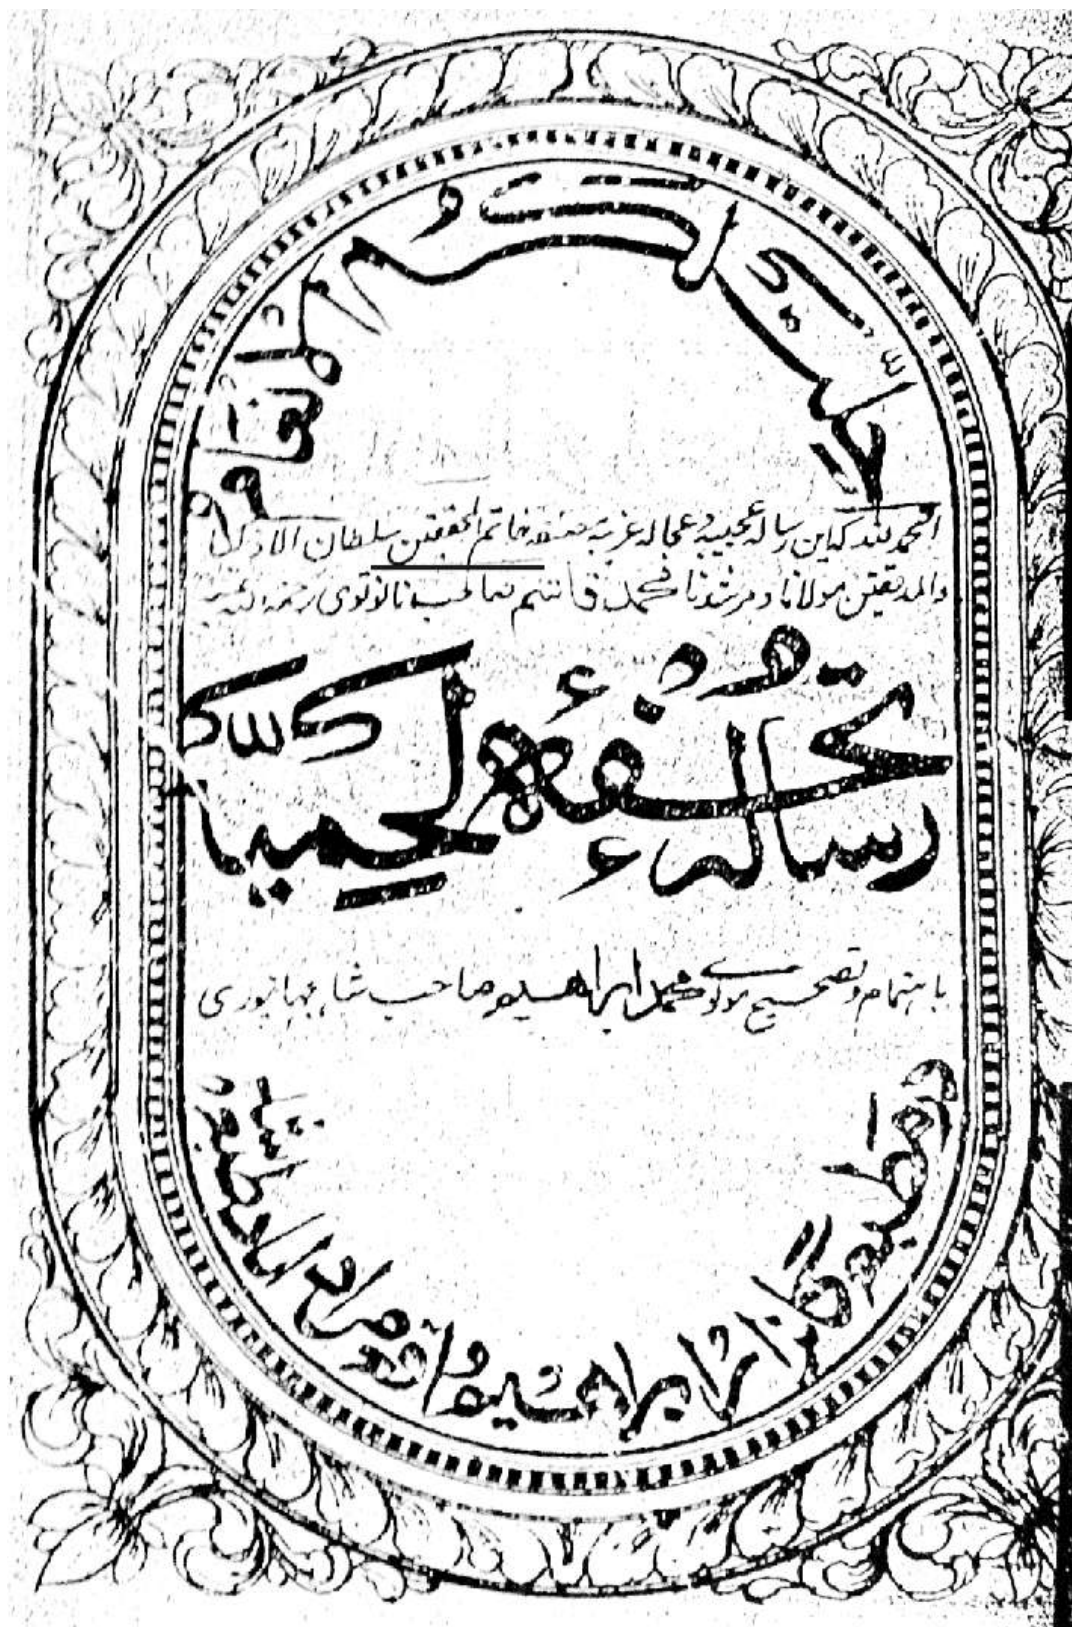 احلت لكم الانعام
الحمد لله که این رساله عجیبه و عجاله غریبه مصنفه خاتم المحققین سلطان الاذکیا
والمدققین مولانا و مرشدنا محمد قاسم صاحب نانوتوی رحمة الله علیه
رسالهٔ تحفهٔ لحمیه
باهتمام و تصحیح مولوی محمد ابراهیم صاحب شاهجهانپوری
در مطبع گلزار ابراهیم واقع مرادآباد طبع